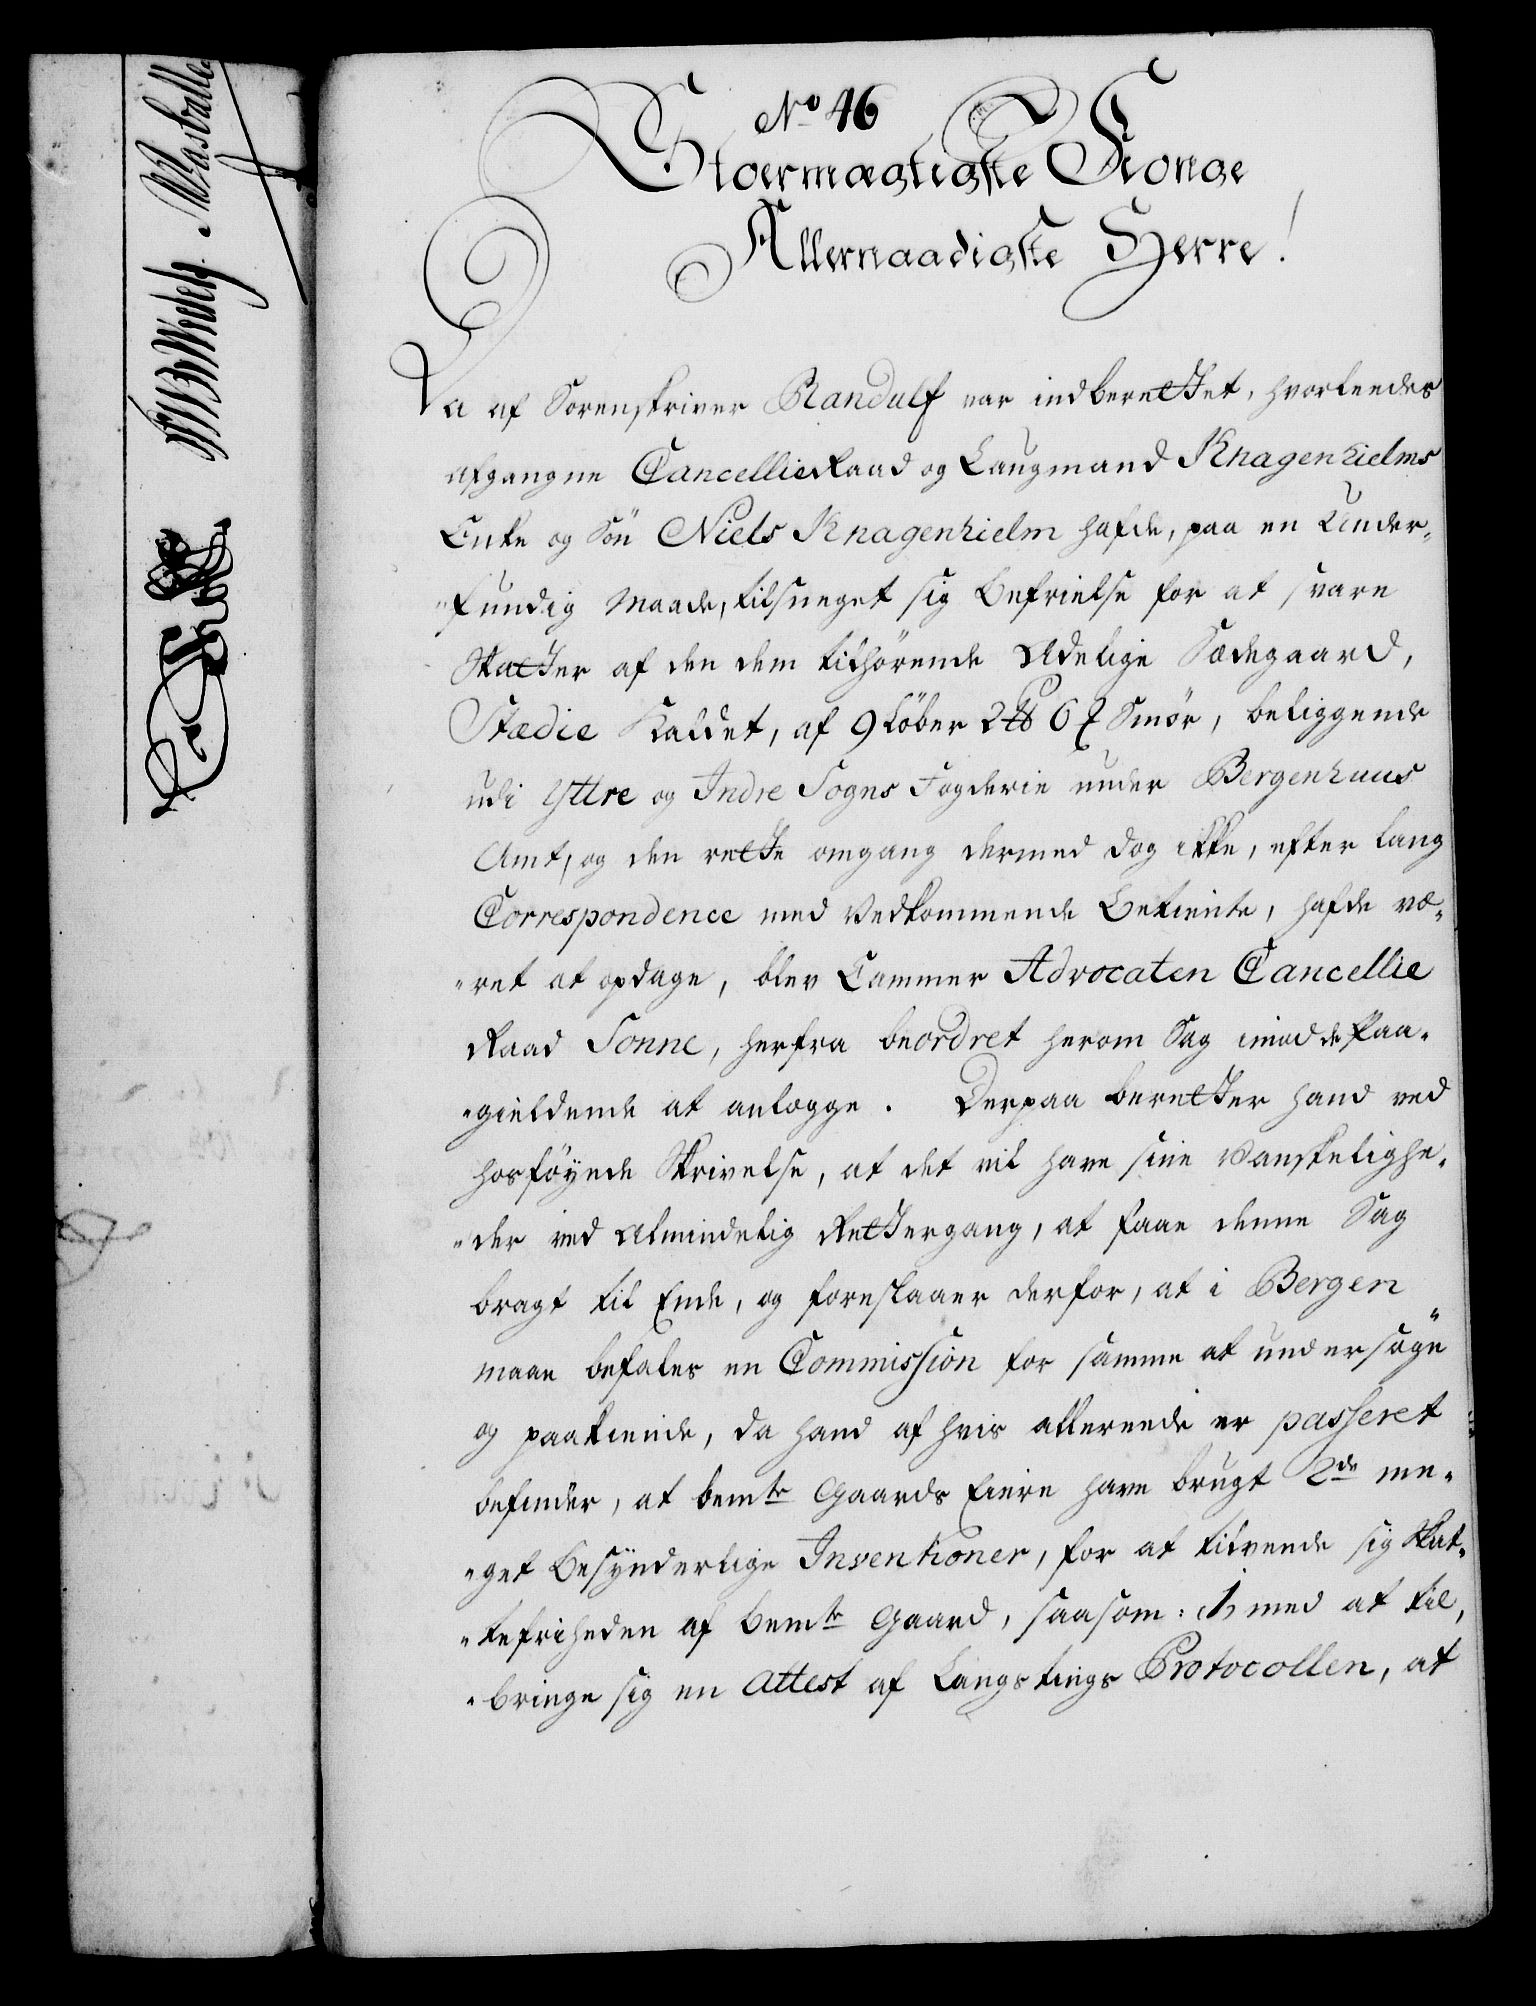 No 46
Stoermægtigste Konge
Allernaadigste Herre!
Da af Sorenskriver Randulf var indberettet, hvorledes
afgangne CancellieRaad og Laugmand Knagenhielms
Enke og Sön Niels Knagenhielm hafde, paa en Under-
-fundig Maade, tilsneget sig Befrielse for at svare
Skatter af den dem tilhörende Adelige Sædegaard,
Stædie Kaldet, af 9 Löber 2 ℔ 6 Smör, beliggende
udi Yttre og Indre Sogns Fogderie under Bergenhuus
Amt, og den rette omgang dermed dog ikke, efter lang
Correspondence med Vedkommende Betiente, hafde væ-
-ret at opdage, blev Cammer Advocaten Cancellie
Raad Sonne, herfra beordret herom Sag imod de Paa-
-gieldende at anlægge. Derpaa beretter hand ved
hosföyede Skrivelse, at det vil have sine Vanskelighe-
-der ved Almindelig Rettergang, at faae denne Sag
bragt til Ende, og foreslaaer derfor, at i Bergen
maae befales en Commission for samme at undersöge
og paakiende, da hand af hvis allerede er passeret
befinder, at bemte Gaards Eiere have brugt 2de me-
-get Besÿnderlige Inventioner, for at tilvende sig Skat-
-tefriheden af bemte Gaard, saasom: 1) med at til-
-bringe sig en Attest af Laugstings Protocollen, at